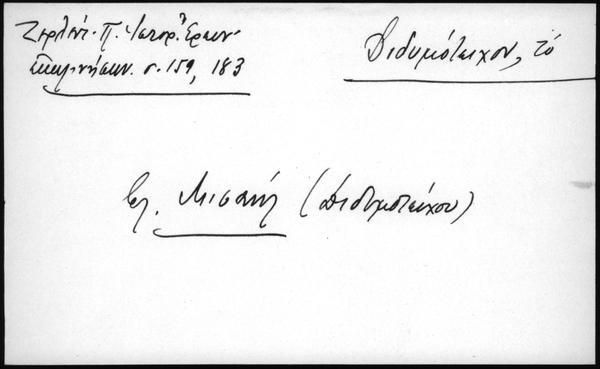 Ζερλέντ. Π. Ἱστορ. Ἔρευν.
σ. 159, 183
Διδυμότειχον, τό
βλ. Μισαήλ (Διδυμοτείχου)